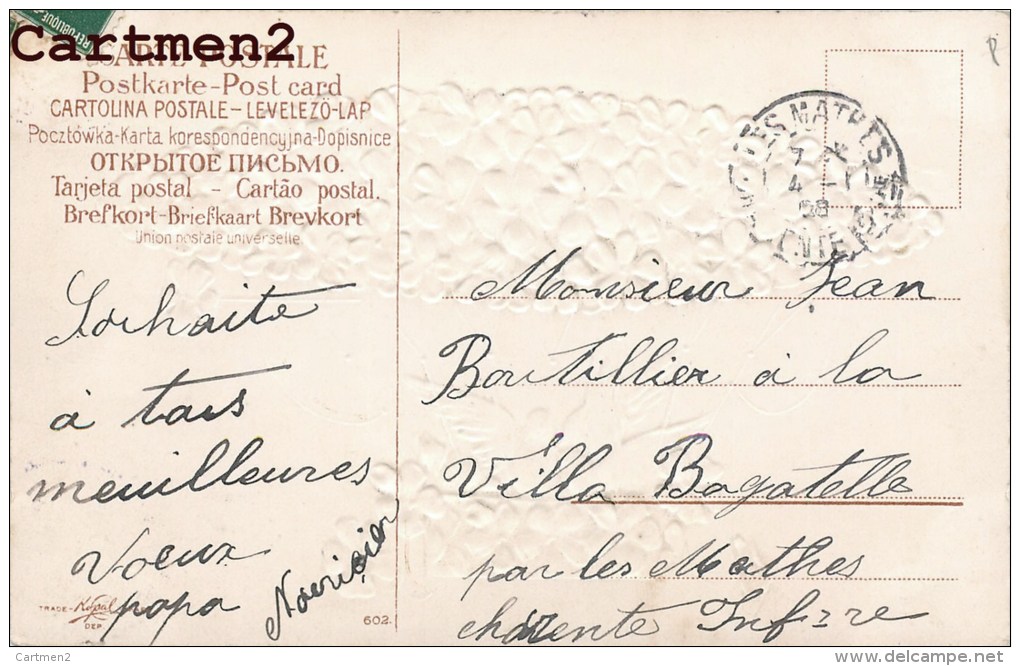 Cartmen2
CARTE POSTALE
Postkarte-Post card
CARTOLINA POSTALE-LEVELEZŐ-LAP
Pocztówka-Karta korespondencyjna-Dopisnice
ОТКРЫТОЕ ПИСЬМО.
Tarjeta postal - Cartão postal.
Brefkort-Briefkaart Brevkort
Union postale universelle
Souhaite
à tous
meuilleures
Voeux
papa
TRADE
DEP.
602.
LES MATHES
7
4 - 1
08
Monsieur Jean
Boutillier à la
Villa Bagatelle
par les Mathes
charente Infre
Cartmen2